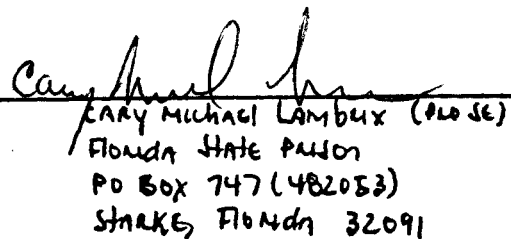 Cary Michael Lambrix
CARY MICHAEL LAMBRIX (PRO SE)
FLORIDA STATE PRISON
PO BOX 747 (482053)
STARKE, FLORIDA 32091